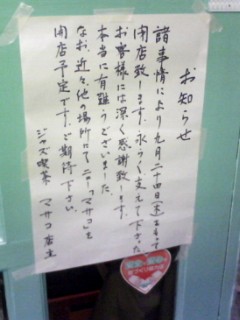 お知らせ
諸事情により九月二十四日(木)をもって
閉店致します。永らく支えて下さった
お客様には深く感謝致します。
本当に有難うございました。
なお、近々、他の場所にてニュー「マサコ」を
開店予定です。ご期待下さい。
ジャズ喫茶 マサコ店主